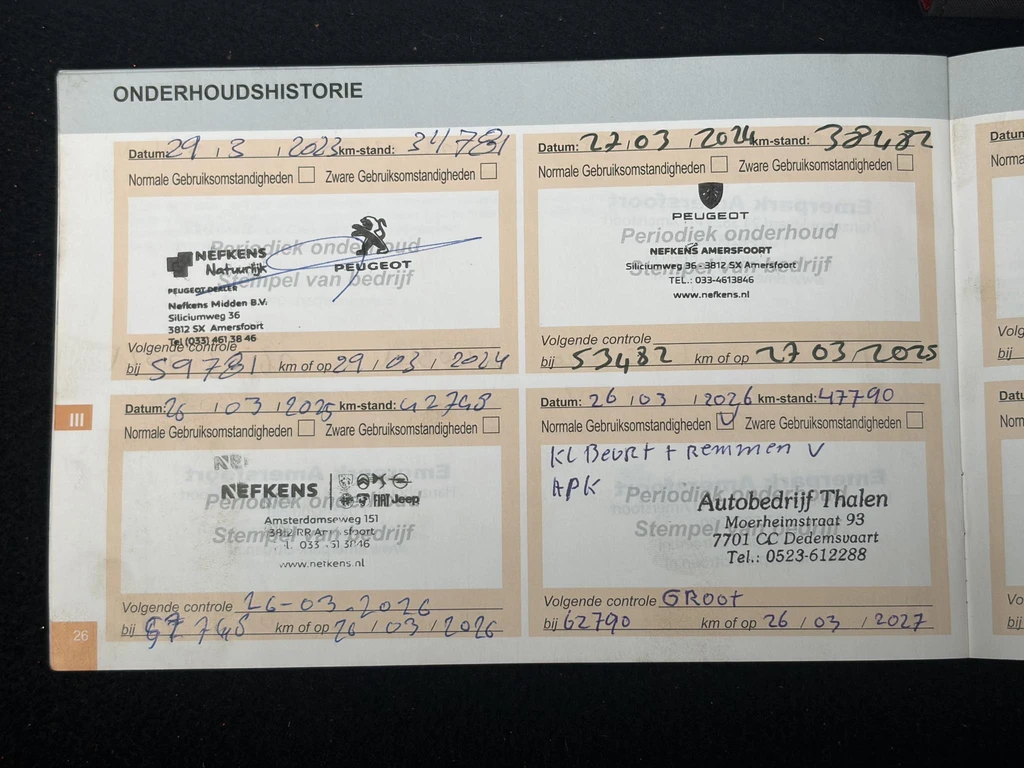 ONDERHOUDSHISTORIE
Datum: 29 / 3 / 2023 km-stand: 34781
Normale Gebruiksomstandigheden Zware Gebruiksomstandigheden
Periodiek onderhoud
Stempel van bedrijf
NEFKENS
Natuurlijk
PEUGEOT
PEUGEOT DEALER
Nefkens Midden B.V.
Siliciumweg 36
3812 SX Amersfoort
Tel (033) 461 38 46
Volgende controle
bij 59781 km of op 29 / 03 / 2024
Datum: 27 / 03 / 2024 km-stand: 38482
Normale Gebruiksomstandigheden Zware Gebruiksomstandigheden
PEUGEOT
Periodiek onderhoud
NEFKENS AMERSFOORT
Stempel van bedrijf
Siliciumweg 36 - 3812 SX Amersfoort
TEL.: 033-4613846
www.nefkens.nl
Volgende controle
bij 53482 km of op 27 03 / 2025
III
Datum: 26 / 03 / 2025 km-stand: 42748
Normale Gebruiksomstandigheden Zware Gebruiksomstandigheden
NEFKENS
FIAT Jeep
Periodiek onderhoud
Amsterdamseweg 151
Stempel van bedrijf
www.nefkens.nl
Volgende controle 26-03-2026
bij 57748 km of op 26 / 03 / 2026
Datum: 26 / 03 / 2026 km-stand: 47790
Normale Gebruiksomstandigheden V Zware Gebruiksomstandigheden
KL Beurt + Remmen V
APK
Periodiek onderhoud
Stempel van bedrijf
Autobedrijf Thalen
Moerheimstraat 93
7701 CC Dedemsvaart
Tel.: 0523-612288
Volgende controle GROOT
bij 62790 km of op 26 / 03 / 2027
26